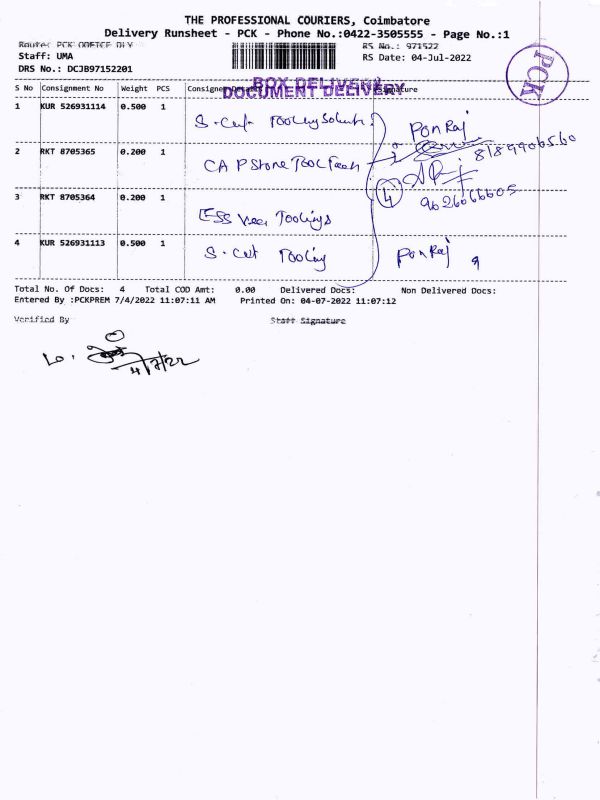 THE PROFESSIONAL COURIERS, Coimbatore
Delivery Runsheet - PCK - Phone No.:0422-3505555 - Page No.:1
Route: PCK OFFICE DLY RS No.: 971522
Staff: UMA RS Date: 04-Jul-2022
DRS No.: DCJB97152201
PCK
BOX DELIVERY
DOCUMENT DELIVERY
S No Consignment No Weight PCS Consignee Details Signature
1 KUR 526931114 0.500 1 S-Cut Tooling Ponraj
2 RKT 8705365 0.200 1 CAPStone Tool Tech
3 RKT 8705364 0.200 1 ESS Vee Toolings
4
4 KUR 526931113 0.500 1 S-Cut Tooling PonRaj
Total No. Of Docs: 4 Total COD Amt: 0.00 Delivered Docs: Non Delivered Docs:
Entered By :PCKPREM 7/4/2022 11:07:11 AM Printed On: 04-07-2022 11:07:12
Verified By Staff Signature
4/7/22